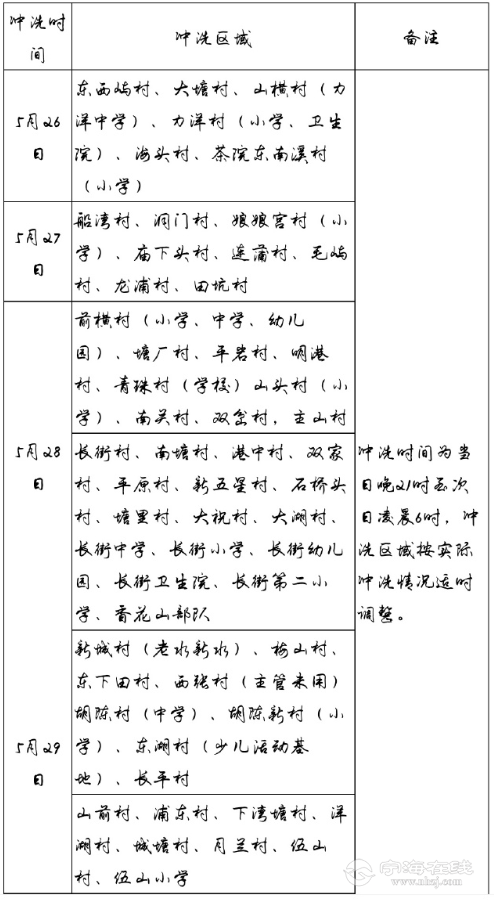 冲洗时间
冲洗区域
备注
5月26日
东西屿村、大塘村、山横村（力
洋中学）、力洋村（小学、卫生
院）、海头村、茶院东南溪村
（小学）
5月27日
船湾村、洞门村、娘娘宫村（小
学）、庙下头村、连蒲村、毛屿
村、龙浦村、田坑村
5月28日
前横村（小学、中学、幼儿
园）、塘厂村、平岩村、明港
村、青珠村（学校）山头村（小
学）、南关村、双岙村，主山村
长街村、南塘村、港中村、双家
村、平原村、新五星村、石桥头
村、塘里村、大祝村、大湖村、
长街中学、长街小学、长街幼儿
园、长街卫生院、长街第二小
学、香花山部队
5月29日
新城村（老水新水）、梅山村、
东下田村、西张村（主管未用）
胡陈村（中学）、胡陈新村（小
学）、东湖村（少儿活动基
地）、长平村
山前村、浦东村、下湾塘村、洋
湖村、城塘村、月兰村、伍山
村、伍山小学
冲洗时间为当
日晚21时至次
日凌晨6时，冲
洗区域按实际
冲洗情况适时
调整。
宁海在线
www.nhzj.com